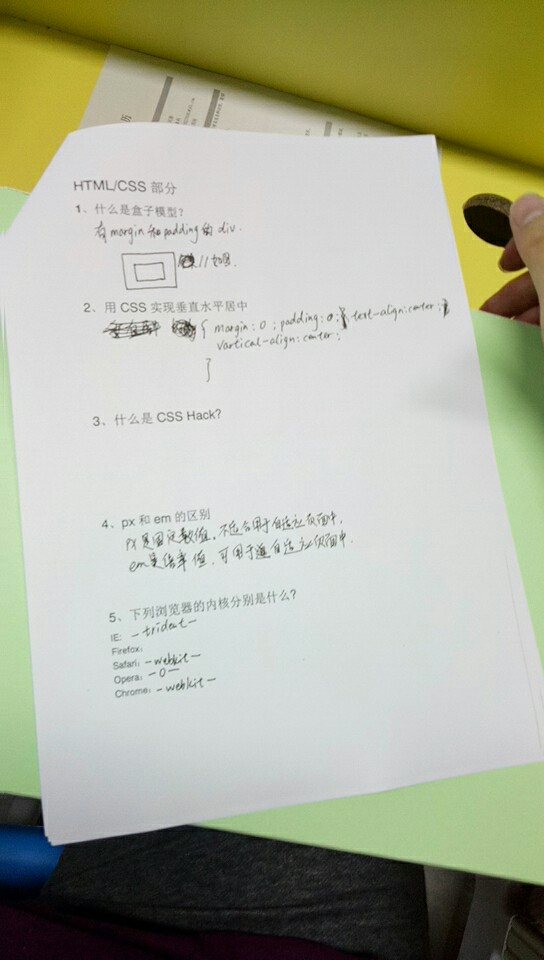 历
HTML/CSS 部分
1、什么是盒子模型?
有margin和padding的 div.
//如图.
2、用 CSS 实现垂直水平居中
{ margin: 0 ; padding: 0 ; text-align:center ;
vartical-align: center ;
}
3、什么是 CSS Hack?
4、px 和 em 的区别
px是固定数值，不适合用于自适应页面中.
em是倍率值，可用于自适应页面中.
5、下列浏览器的内核分别是什么?
IE: -trident-
Firefox:
Safari: -webkit-
Opera: -O-
Chrome: -webkit-